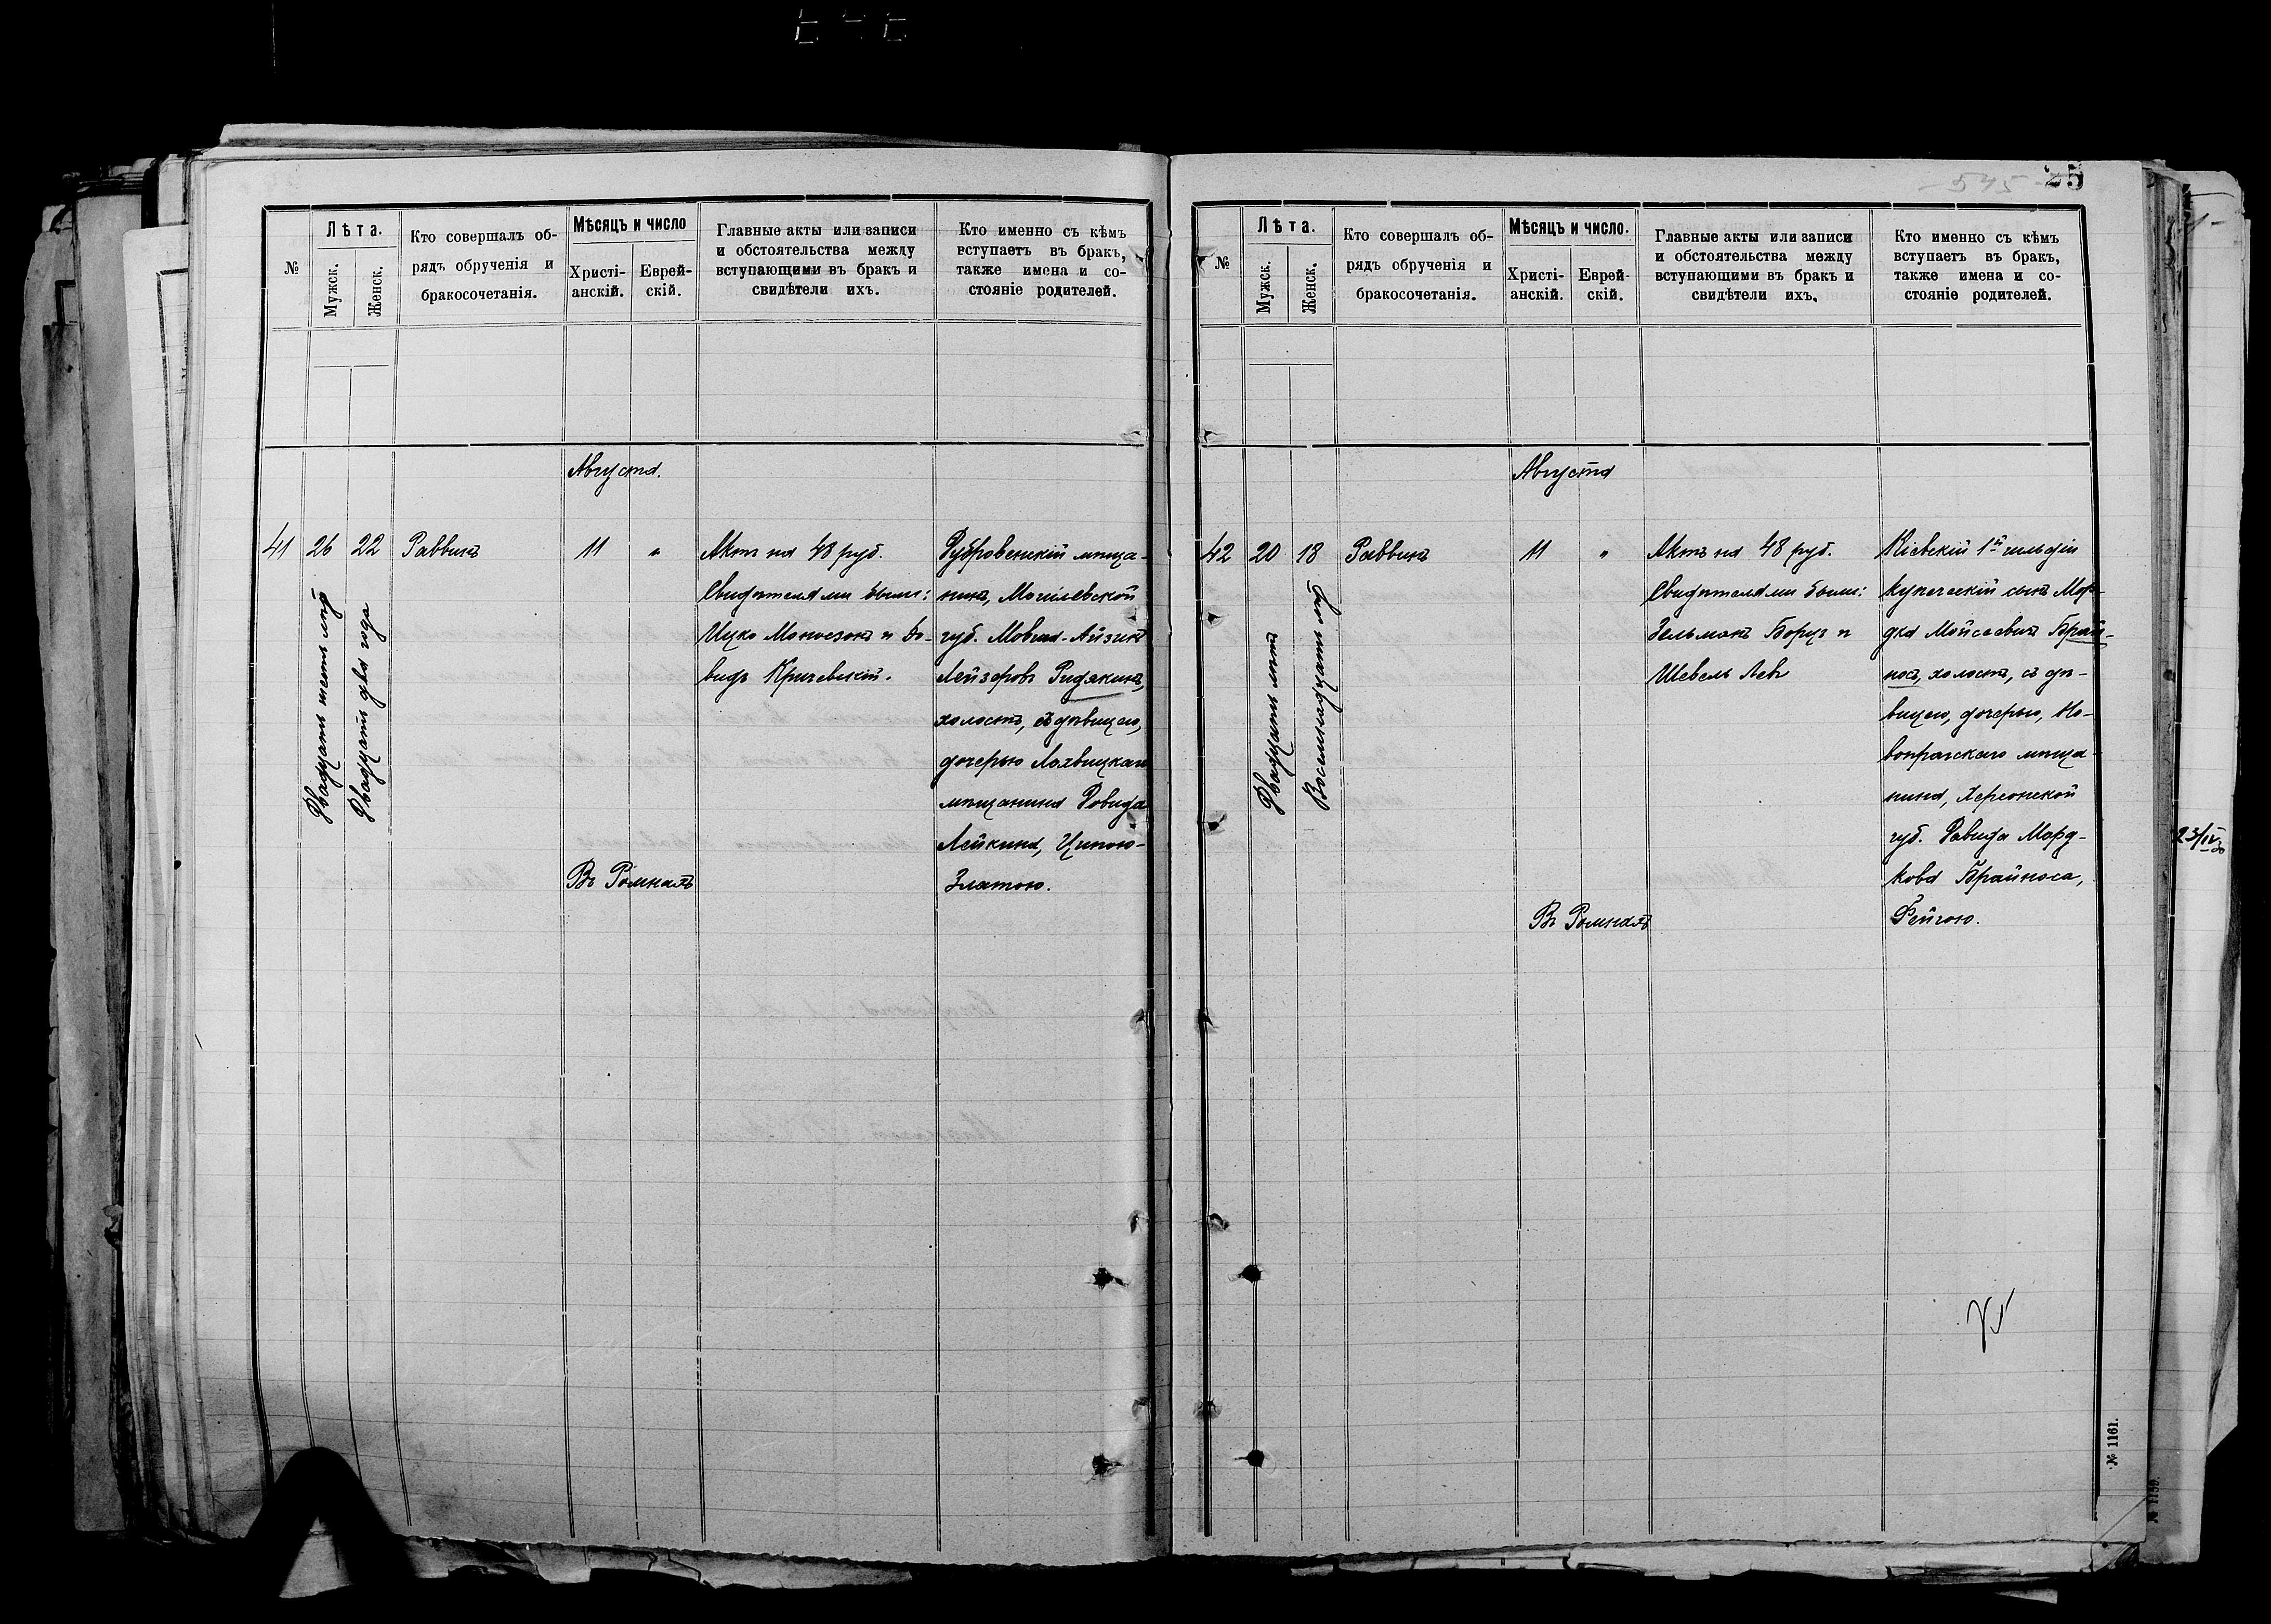 №
Лѣта.
Мужск.
Женск.
Кто совершалъ об-
рядъ обрученія и
бракосочетанія.
Мѣсяцъ и число
Христі-
анскій.
Еврей-
скій.
Главные акты или записи
и обстоятельства между
вступающими въ бракъ и
свидѣтели ихъ.
Кто именно съ кѣмъ
вступаетъ въ бракъ,
также имена и со-
стояніе родителей.
Августа.
41
26
22
Двадцать шесть лѣтъ
Двадцать два года
Раввинъ
11
"
Въ Ромнахъ
Актъ на 48 руб.
Свидѣтелями были:
Ицко Моносзонъ и До-
видъ Кричевскій.
Дубровенскій мѣща-
нинъ, Могилевской
губ. Мовша-Айзикъ
Лейзеровъ Ридякинъ,
холостъ, съ дѣвицею,
дочерью Лохвицкаго
мѣщанина Довида
Лейкина, Ципою-
Златою.
25
545
№
Лѣта.
Мужск.
Женск.
Кто совершалъ об-
рядъ обрученія и
бракосочетанія.
Мѣсяцъ и число.
Христі-
анскій.
Еврей-
скій.
Главные акты или записи
и обстоятельства между
вступающими въ бракъ и
свидѣтели ихъ.
Кто именно съ кѣмъ
вступаетъ въ бракъ,
также имена и со-
стояніе родителей.
Августа
42
20
18
Двадцать лѣтъ
Восемнадцать лѣтъ
Раввинъ
11
"
Въ Ромнахъ
Актъ на 48 руб.
Свидѣтелями были:
Зельманъ Борух и
Шевель Левъ
Кіевскій 1й гильдіи
купеческій сынъ Мор-
дка Мойсеевичъ Брай-
носъ, холостъ, съ дѣ-
вицею, дочерью, Но-
вопражскаго мѣща-
нина, Херсонской
губ. Давида Морд-
кова Брайноса,
Фейгою.
№ 1161.